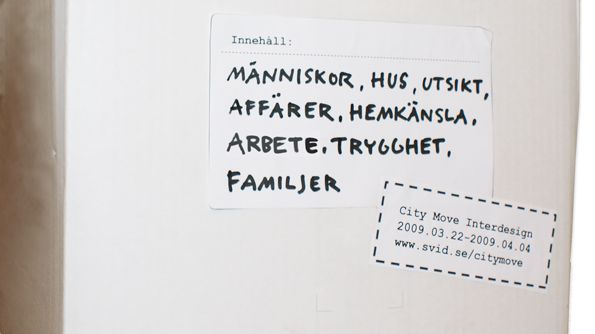 Innehåll:
MÄNNISKOR, HUS, UTSIKT,
AFFÄRER, HEMKÄNSLA,
ARBETE, TRYGGHET,
FAMILJER
City Move Interdesign
2009.03.22-2009.04.04
www.svid.se/citymove